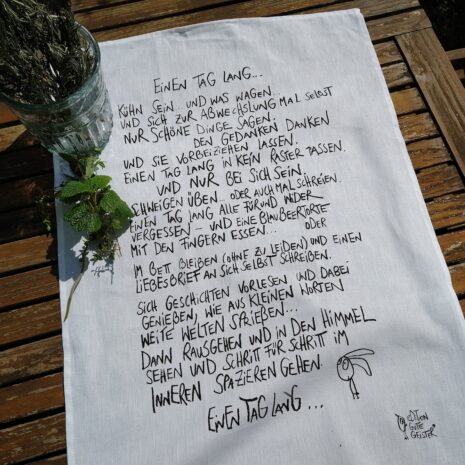 EINEN TAG LANG...
KÜHN SEIN.. UND WAS WAGEN.
UND SICH ZUR ABWECHSLUNG MAL SELBST
NUR SCHÖNE DINGE SAGEN.
DEN GEDANKEN DANKEN
UND SIE VORBEIZIEHEN LASSEN.
EINEN TAG LANG IN KEIN RASTER PASSEN.
UND NUR BEI SICH SEIN.
SCHWEIGEN ÜBEN... ODER AUCH MAL SCHREIEN.
EINEN TAG LANG ALLE FÜR UND WIDER
VERGESSEN - UND EINE BLAUBEERTORTE
MIT DEN FINGERN ESSEN... ODER
IM BETT BLEIBEN (OHNE ZU LEIDEN) UND EINEN
LIEBESBRIEF AN SICH SELBST SCHREIBEN.
SICH GESCHICHTEN VORLESEN UND DABEI
GENIEßEN, WIE AUS KLEINEN WORTEN
WEITE WELTEN SPRIEßEN...
DANN RAUSGEHEN UND IN DEN HIMMEL
SEHEN UND SCHRITT FÜR SCHRITT IM
INNEREN SPAZIERENGEHEN.
EINEN TAG LANG...
EDITION
GUTE
GEISTER